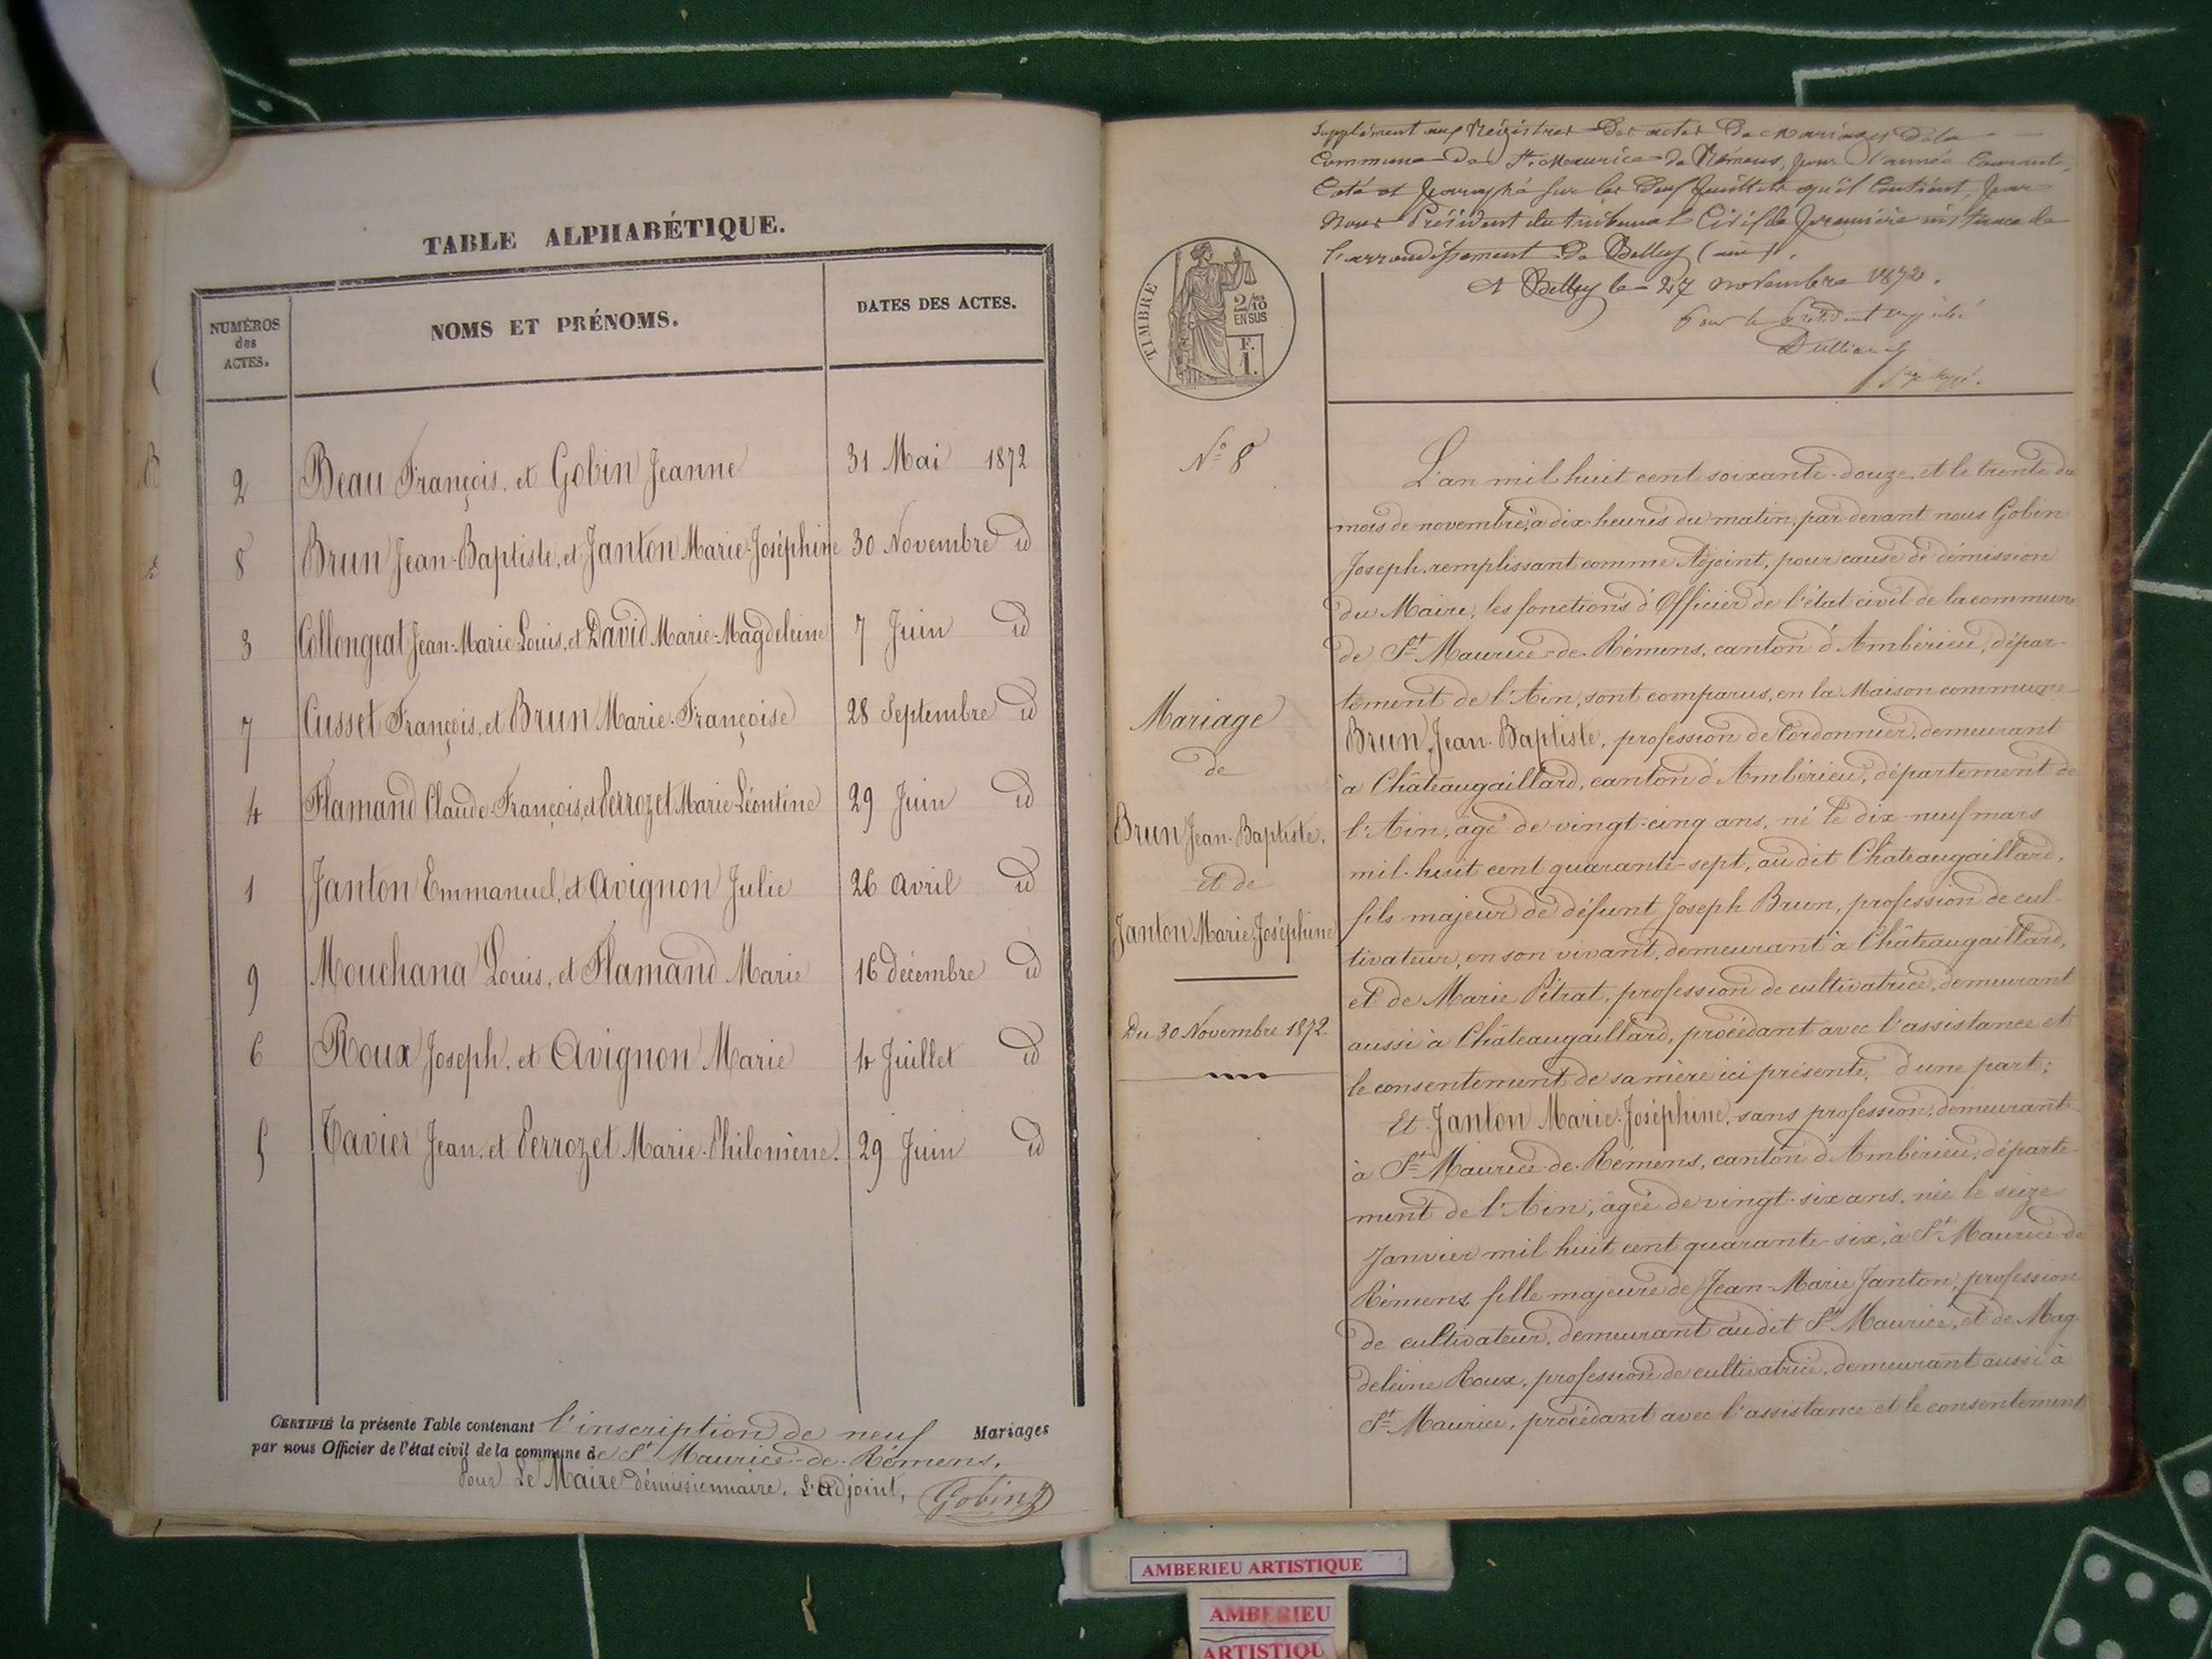 TABLE ALPHABÉTIQUE.
NUMÉROS des ACTES.
NOMS ET PRÉNOMS.
DATES DES ACTES.
2 Beau François, et Gobin Jeanne 31 Mai 1872
8 Brun Jean-Baptiste, et Janton Marie-Joséphine 30 Novembre id
3 Collongeat Jean-Marie Louis, et David Marie-Magdeleine 7 Juin id
7 Cusset François, et Brun Marie-Françoise 28 Septembre id
4 Flamand Claude-François, et Perrozet Marie Léontine 29 Juin id
1 Janton Emmanuel, et Avignon Julie 26 Avril id
9 Mouchana Louis, et Flamand Marie 16 décembre id
6 Roux Joseph, et Avignon Marie 4 Juillet id
5 Tavier Jean, et Perrozet Marie-Philomène. 29 Juin id
CERTIFIÉ la présente Table contenant l'inscription de neuf Mariages
par nous Officier de l'état civil de la commune de St Maurice-de-Rémens,
Pour Le Maire démissionnaire, L'adjoint, Gobin
Supplément aux Régistres des actes de mariages de la
Commune de St. Maurice de Rémens, pour l'année Courante,
Coté et paraphé sur les deux feuillets qu'il Contient, par
Nous Président du tribunal Civil de première instance de
l'arrondissement de Belley (ain).
A Belley le 27 novembre 1872.
Pour le Président empêché
TIMBRE
2/10
EN SUS
F.
1.
No 8
Mariage
de
Brun Jean-Baptiste,
et de
Janton Marie-Joséphine
Du 30 Novembre 1872.
L'an mil huit cent soixante-douze, et le trente du
mois de novembre, à dix heures du matin, par-devant nous Gobin
Joseph, remplissant comme Adjoint, pour cause de démission
du Maire, les fonctions d'Officier de l'état civil de la commune
de St Maurice-de-Rémens, canton d'Ambérieu, dépar-
tement de l'Ain, sont comparus, en la Maison commune
Brun Jean-Baptiste, profession de Cordonnier, demeurant
à Châteaugaillard, canton d'Ambérieu, département de
l'Ain, âgé de vingt-cinq ans, né le dix-neuf mars
mil-huit cent quarante-sept, au dit Chateaugaillard,
fils majeur de défunt Joseph Brun, profession de cul-
tivateur, en son vivant, demeurant à Châteaugaillard,
et de Marie Pétrat, profession de cultivatrice, demeurant
aussi à Châteaugaillard, procédant avec l'assistance et
le consentement de sa mère ici présente, d'une part;
Et Janton Marie-Joséphine, sans profession, demeurant
à St Maurice-de-Rémens, canton d'Ambérieu, départe-
ment de l'Ain, âgée de vingt-six ans, née le seize
Janvier mil huit cent quarante-six, à St Maurice de
Rémens fille majeure de Jean-Marie Janton, profession
de cultivateur, demeurant audit St Maurice, et de Mag-
deleine Roux, profession de cultivatrice, demeurant aussi à
St Maurice, procédant avec l'assistance et le consentement
AMBERIEU ARTISTIQUE
AMBERIEU
ARTISTIQU